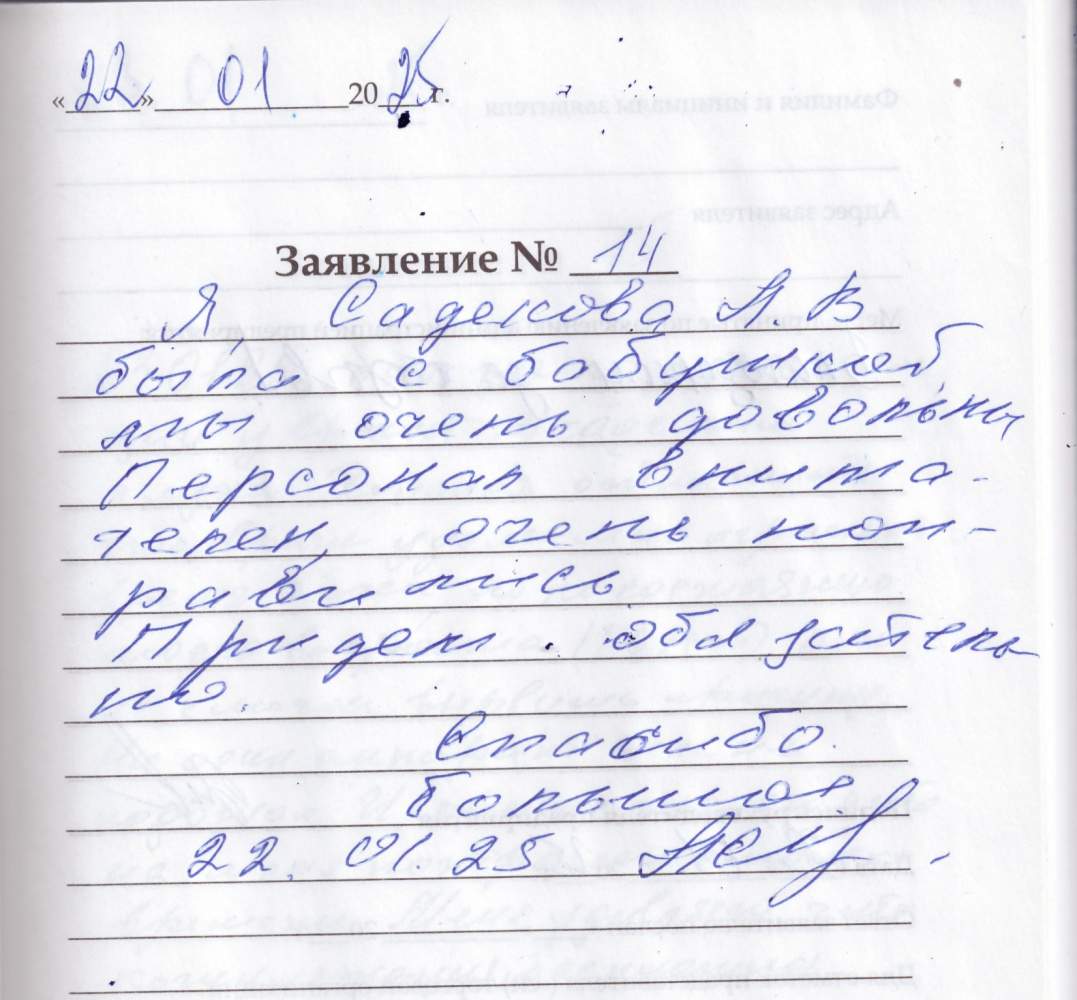 «22» 01 2025 г.
Заявление № 14
Я, Садекова А В
была с бабушкой,
мы очень довольны
Персонал внима-
телен, очень пон-
равились
Придем. обязатель
но.
Спасибо.
большое
22. 01 25